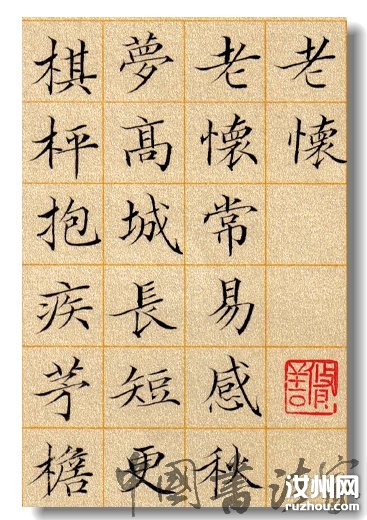 老懷
老懷常易感
夢髙城長短更
棋枰抱疾茅檐
中國書法家
汝州网
ruzhou.com